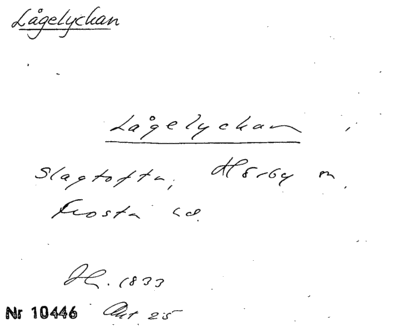 Lågelyckan
Lågelyckan
Slagtofta, Hörby sn,
Frosta hd.
1833
Nr 10446 Akt 25